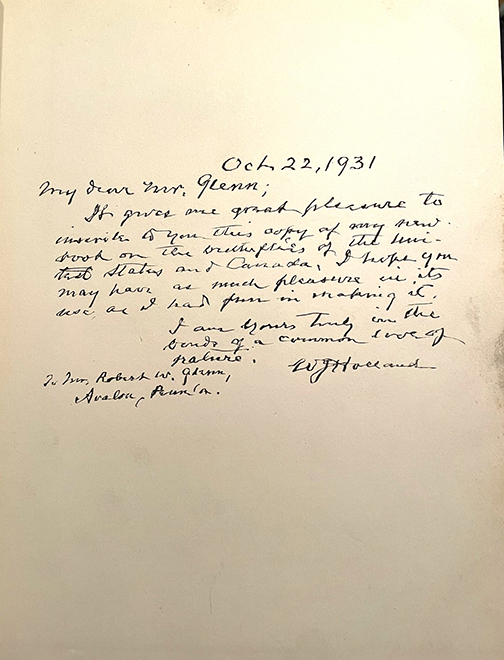 Oct. 22, 1931
My dear Mr. Glenn;
It gives me great pleasure to
inscribe to you this copy of my new
book on the butterflies of the Uni-
ted States and Canada. I hope you
may have as much pleasure in its
use as I had fun in making it.
I am Yours truly in the
bonds of a common love of
nature.
WJHolland
To Mr. Robert W. Glenn,
Avalon, Penn'a.